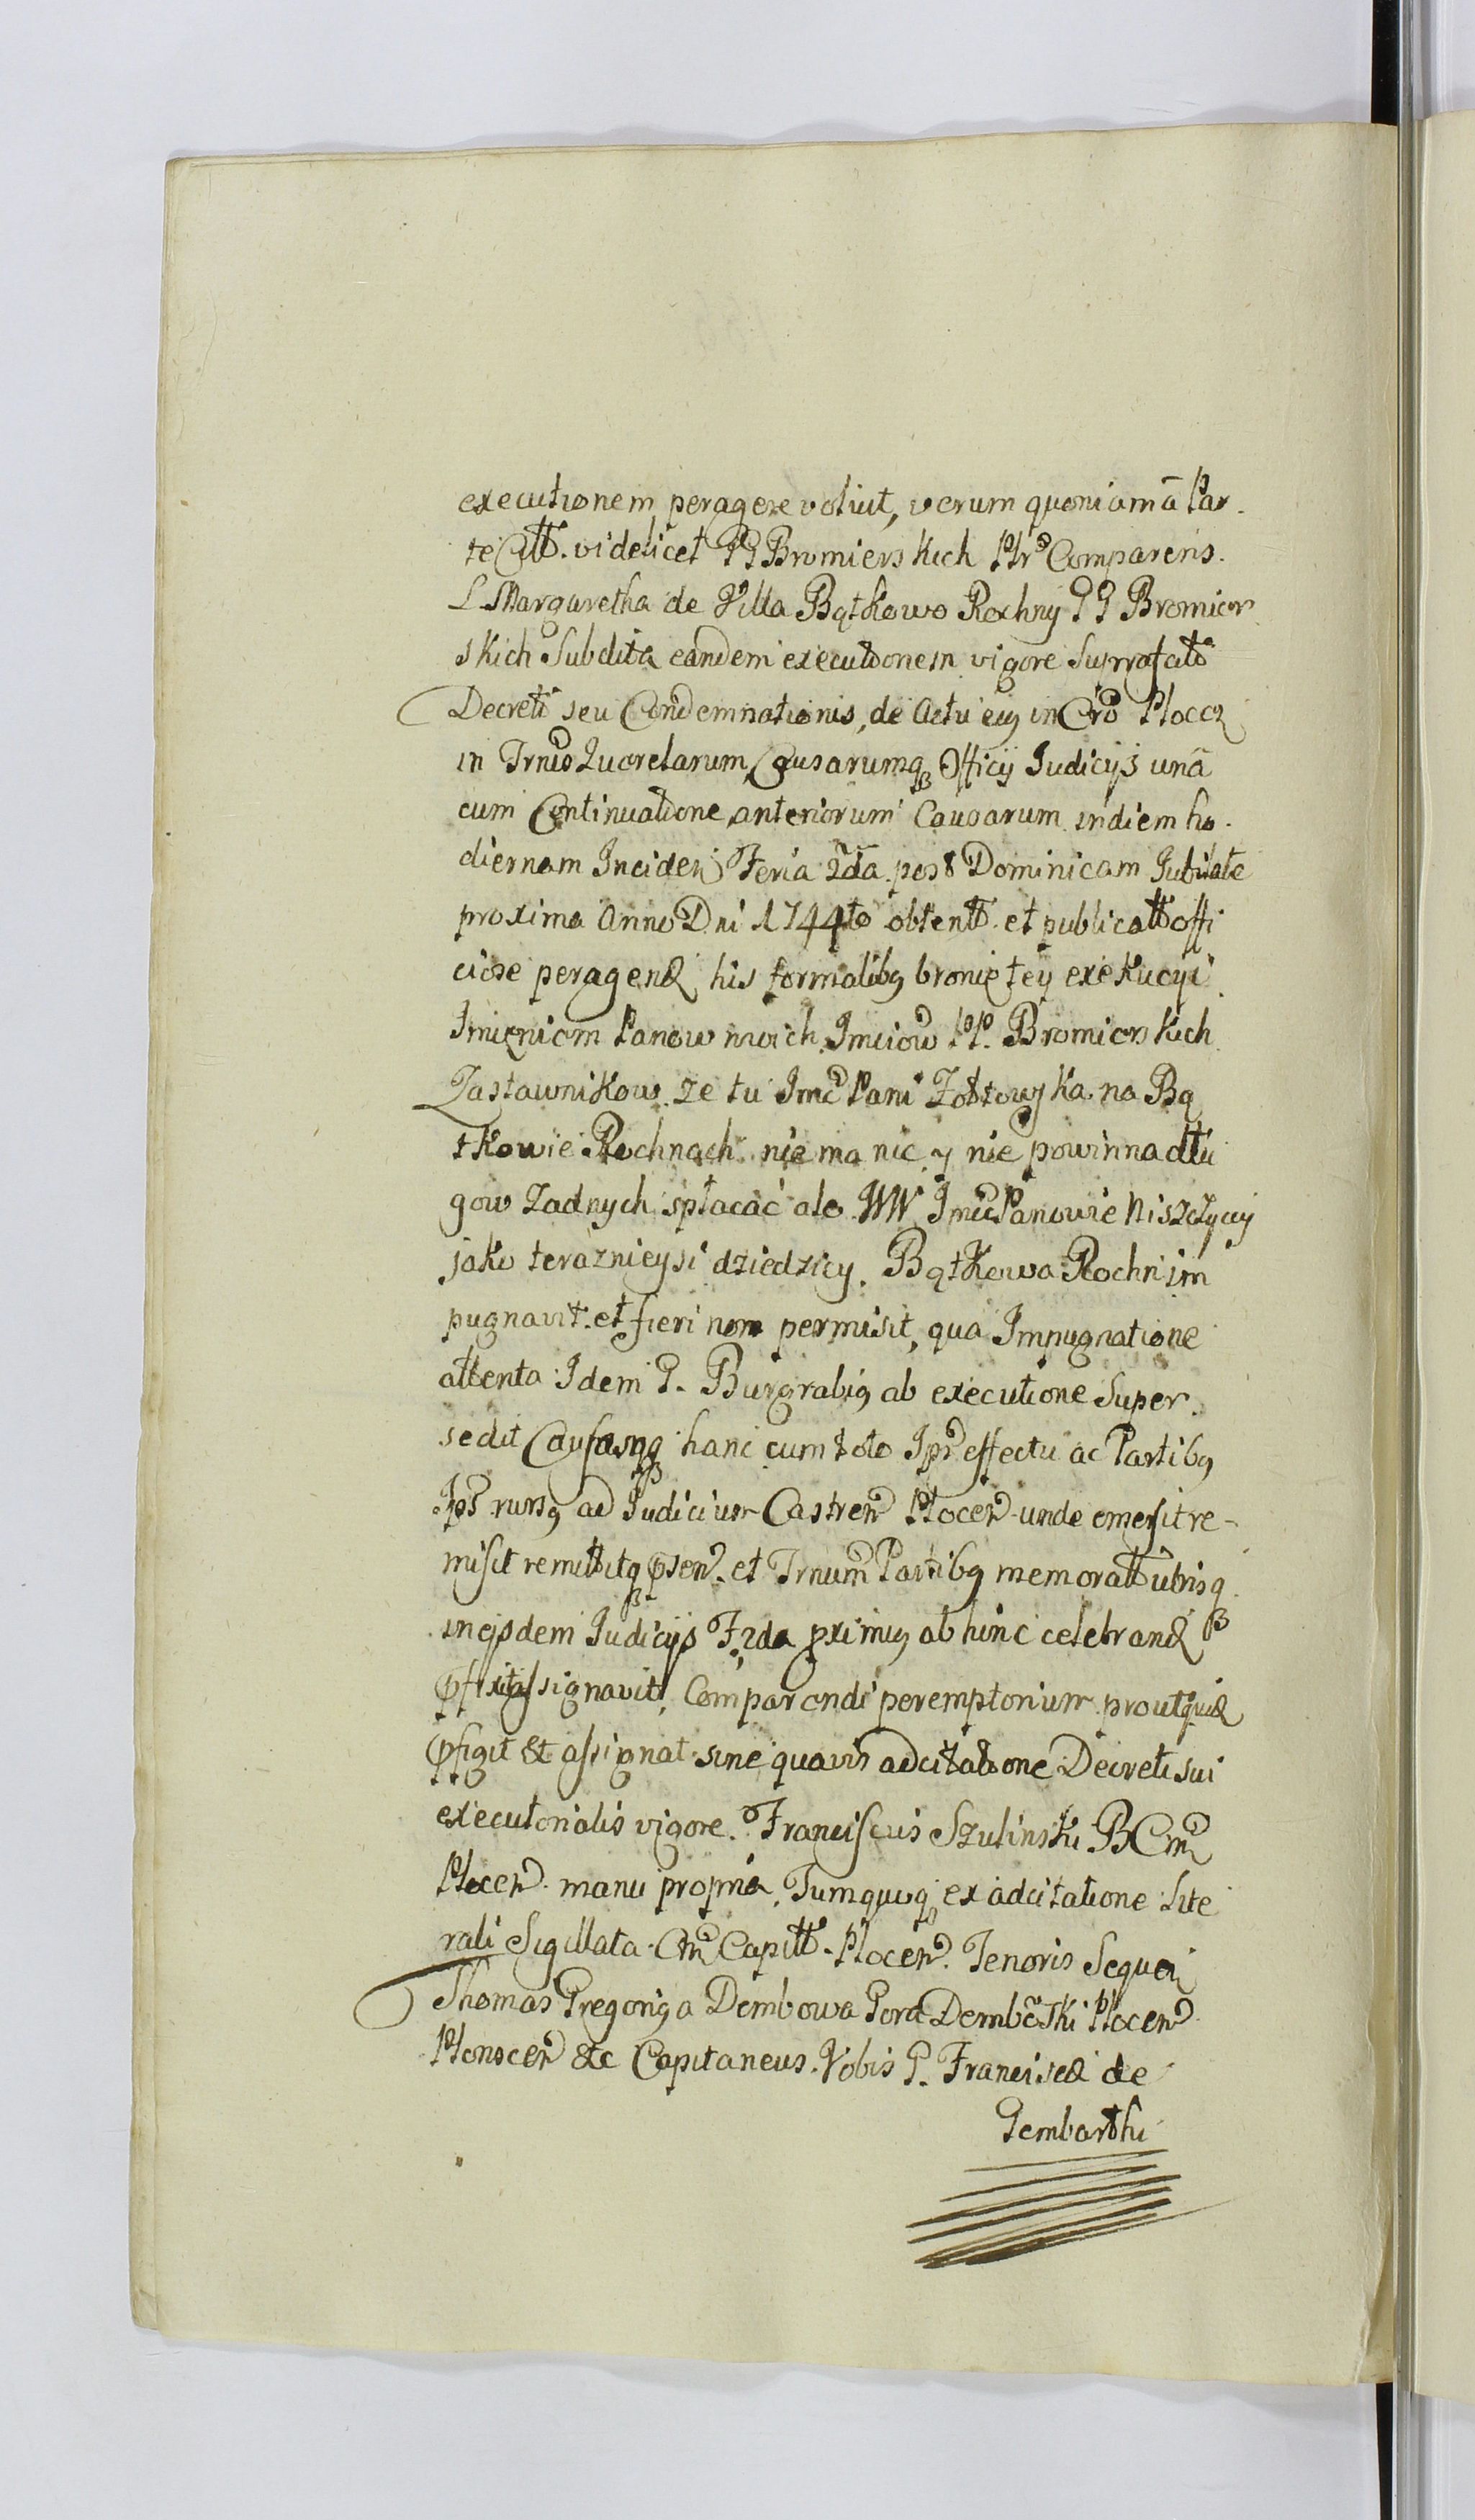 executionem peragere voluit, verum quoniam ā Par-
te Citt. videlicet GG Bromierskich Ptr Comparens.
L Margaretha de Villa Bątkowo Rochny GG Bromier
skich Subdita eandem executionem vigore suprafati
Decreti seu Condemnationis, de Actu ejg in Cro Plocen
in Trnis Querelarum, Causarumq Officij Judicijs unā
cum Continuatione anteriorum Causarum in diem ho-
diernam Inciden Feria 2da post Dominicam Jubilate
proxima Anno Dni 1744to obtent. et publicatt offi
ciose peragend his formalibg bronię tey exekucyi
Imieniem Panow mwich Imciow PP. Bromierskich
Zastawnikow. ze tu Imc Pani Zołtowska na Bą
tkowie Rochnach nie ma nic y nie powinna dłu
gow Zadnych spłacać ale WW Imc Panowie Niszczyccy
jako teraznieysi dziedzicy. Bątkowa Rochn im
pugnavit et fieri non permisit, qua Impugnatione
attenta Idem G. Burgrabig ab executione Super-
sedit Causamq hanc cum toto Ipr effectu ac Partibg
Ips rursg ad Judicium Castren Plocen unde emersit re-
misit remittitq psen. et Trnum Partibg memoratt utrisq
in ejsdem Judicijs F. 2da ximig ab hinc celebrand
pfixit assignavit, Comparendi peremptorium prout quid
pfigit et assignat sine quavis adcitatione Decreti sui
executorialis vigore. Franciscus Szulinski B Cm
Plocen. manu propria. Tum quoq ex adcitatione Lite
rali Sigillata Cm Capitt. Plocen. Tenoris Sequen
Thomas Gregorig a Dembowa Gora Dembōski Plocen
Plonscen etc Capitaneus. Vobis G. Francisco de
Gembarthi